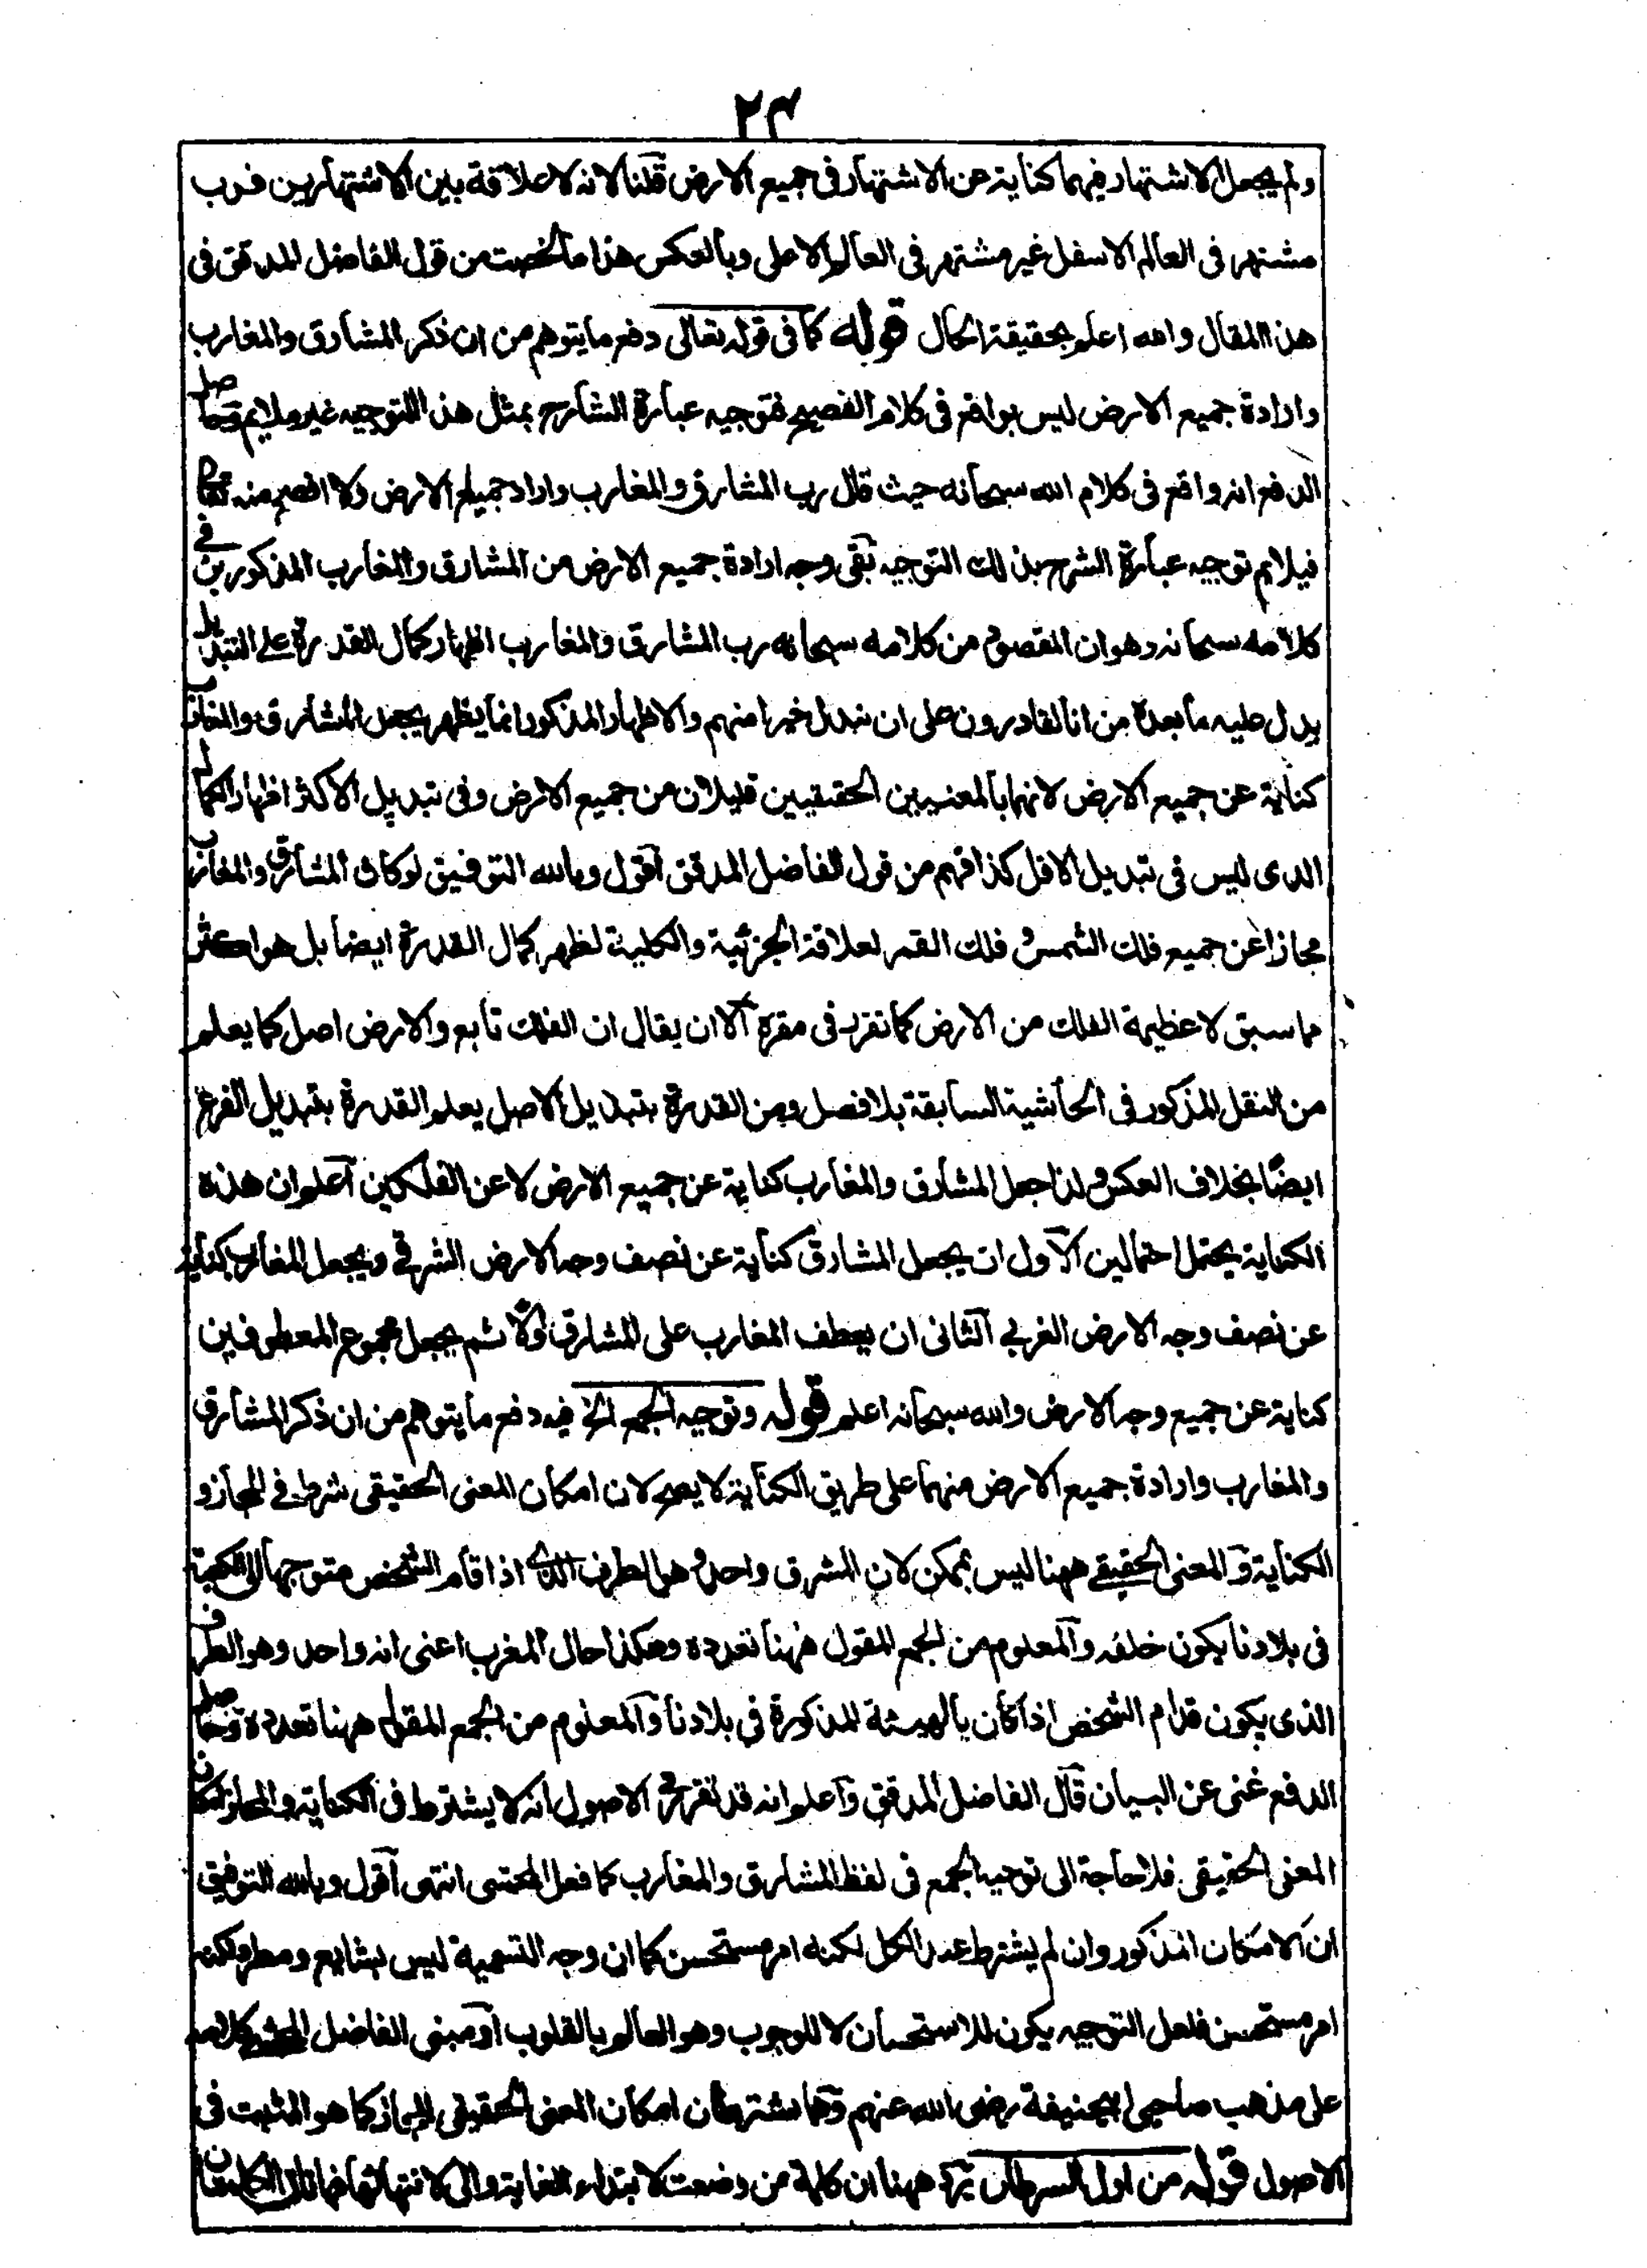 ٢٣
ولم يجعل الاشتهار فيهما كناية عن الاشتهار فى جميع الارض قلنا لانه لا علاقة بين الاشتهارين فرب
مشتهر فى العالم الاسفل غير مشتهر فى العالم الاعلى وبالعكس هذا ما لخصت من قول الفاضل المدقق فى
هذا المقال والله اعلم بحقيقة الحال قوله كما فى قوله تعالى دفع ما يتوهم من ان ذكر المشارق والمغارب
وارادة جميع الارض ليس بواقع فى كلام الفصيح فتوجيه عبارة الشارح بمثل هذا التوجيه غير ملايم وحاصل
الدفع انه واقع فى كلام الله سبحانه حيث قال رب المشارق والمغارب واراد جميع الارض ولا افصح منه تعالى
فيلايم توجيه عبارة الشرح بذلك التوجيه بقى وجه ارادة جميع الارض من المشارق والمغارب المذكورين فى
كلامه سبحانه وهو ان المقصود من كلامه سبحانه رب المشارق والمغارب اظهار كمال القدرة على التبديل
يدل عليه ما بعده من انا لقادرون على ان نبدل خيرا منهم والاظهار المذكور انما يظهر بجعل المشارق والمغارب
كناية عن جميع الارض لانهما بالمعنيين الحقيقيين قليلان من جميع الارض وفى تبديل الاكثر اظهار الكمال
الذى ليس فى تبديل الاقل كذا فهم من قول الفاضل المدقق اقول وبالله التوفيق لو كان المشارق والمغارب
مجازا عن جميع فلك الشمس و فلك القمر لعلاقة الجزئية والكلية لظهر كمال القدرة ايضا بل هو اكثر
مما سبق لاعظمية الفلك من الارض كما تقرر فى مقره الا ان يقال ان الفلك تابع والارض اصل كما يعلم
من النقل المذكور فى الحاشية السابقة بلا فصل ومن القدرة بتبديل الاصل يعلم القدرة بتبديل الفرع
ايضًا بخلاف العكس ولذا جعل المشارق والمغارب كناية عن جميع الارض لا عن الفلكين اعلم ان هذه
الكناية يحتمل احتمالين الاول ان يجعل المشارق كناية عن نصف وجه الارض الشرقى ويجعل المغارب كناية
عن نصف وجه الارض الغربى الثانى ان يعطف المغارب على المشارق اولا ثم يجعل مجموع المعطوفين
كناية عن جميع وجه الارض والله سبحانه اعلم قوله وتوجيه الجمع الخ فيه دفع ما يتوهم من ان ذكر المشارق
والمغارب وارادة جميع الارض منهما على طريق الكناية لا يصح لان امكان المعنى الحقيقى شرط فى المجاز و
الكناية والمعنى الحقيقى ههنا ليس بممكن لان المشرق واحد وهو الطرف الذى اذا قام الشخص متوجها الى الكعبة
فى بلادنا يكون خلفه والمعلوم من الجمع المقول ههنا تعدده وهكذا حال المغرب اعنى انه واحد وهو الطرف
الذى يكون قدام الشخص اذا كان بالهيئة المذكورة فى بلادنا والمعلوم من الجمع المقول ههنا تعدده وحاصل
الدفع غنى عن البيان قال الفاضل المدقق واعلم انه قد تقرر فى الاصول انه لا يشترط فى الكناية والمجاز امكان
المعنى الحقيقى فلا حاجة الى توجيه الجمع فى لفظ المشارق والمغارب كما فعل المحشى انتهى اقول وبالله التوفيق
ان الامكان المذكور وان لم يشترط عند الكل لكنه امر مستحسن كما ان وجه التسمية ليس بشايع ومطرد لكنه
امر مستحسن فلعل التوجيه يكون للاستحسان لا للوجوب وهو العالم بالقلوب او مبنى الفاضل المحشى كلامه
على مذهب صاحبى ابيحنيفة رضى الله عنهم وهما يشترطان امكان المعنى الحقيقى للمجاز كما هو المثبت فى
الاصول قوله من اول السرطان يرد ههنا ان كلمة من وضعت لابتداء الغاية والى لانتهائها فهاتان الكلمتان